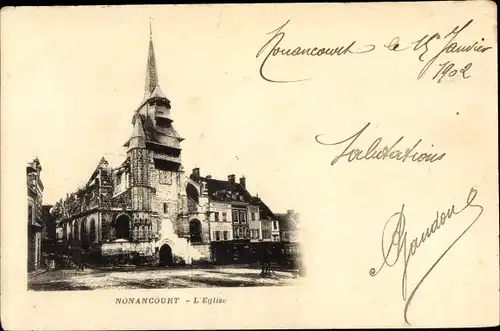 Nonancourt le 15 Janvier
1902
Salutations
Gaudon
NONANCOURT - L'Eglise